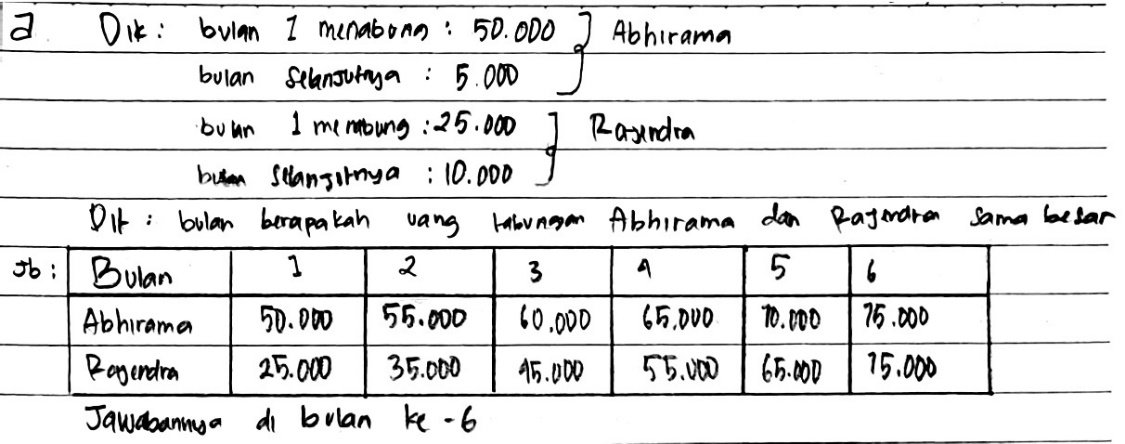 a Dik : bulan 1 menabung : 50.000 } Abhirama
bulan selanjutnya : 5.000
bulan 1 menabung : 25.000 } Rajendra
bulan selanjutnya : 10.000
Dit : bulan berapakah uang tabungan Abhirama dan Rajendra sama besar
Jb : Bulan 1 2 3 4 5 6
Abhirama 50.000 55.000 60.000 65.000 70.000 75.000
Rajendra 25.000 35.000 45.000 55.000 65.000 75.000
Jawabannya di bulan ke - 6